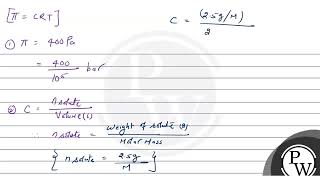 [π = CRT]
① π = 400 Pa
= 400/10⁵ bar
② C = n solute / Volume (L)
∴ n solute = Weight of solute (g) / Molar Mass
{ n solute = 25g / M }
C = (25g/M) / 2
PW